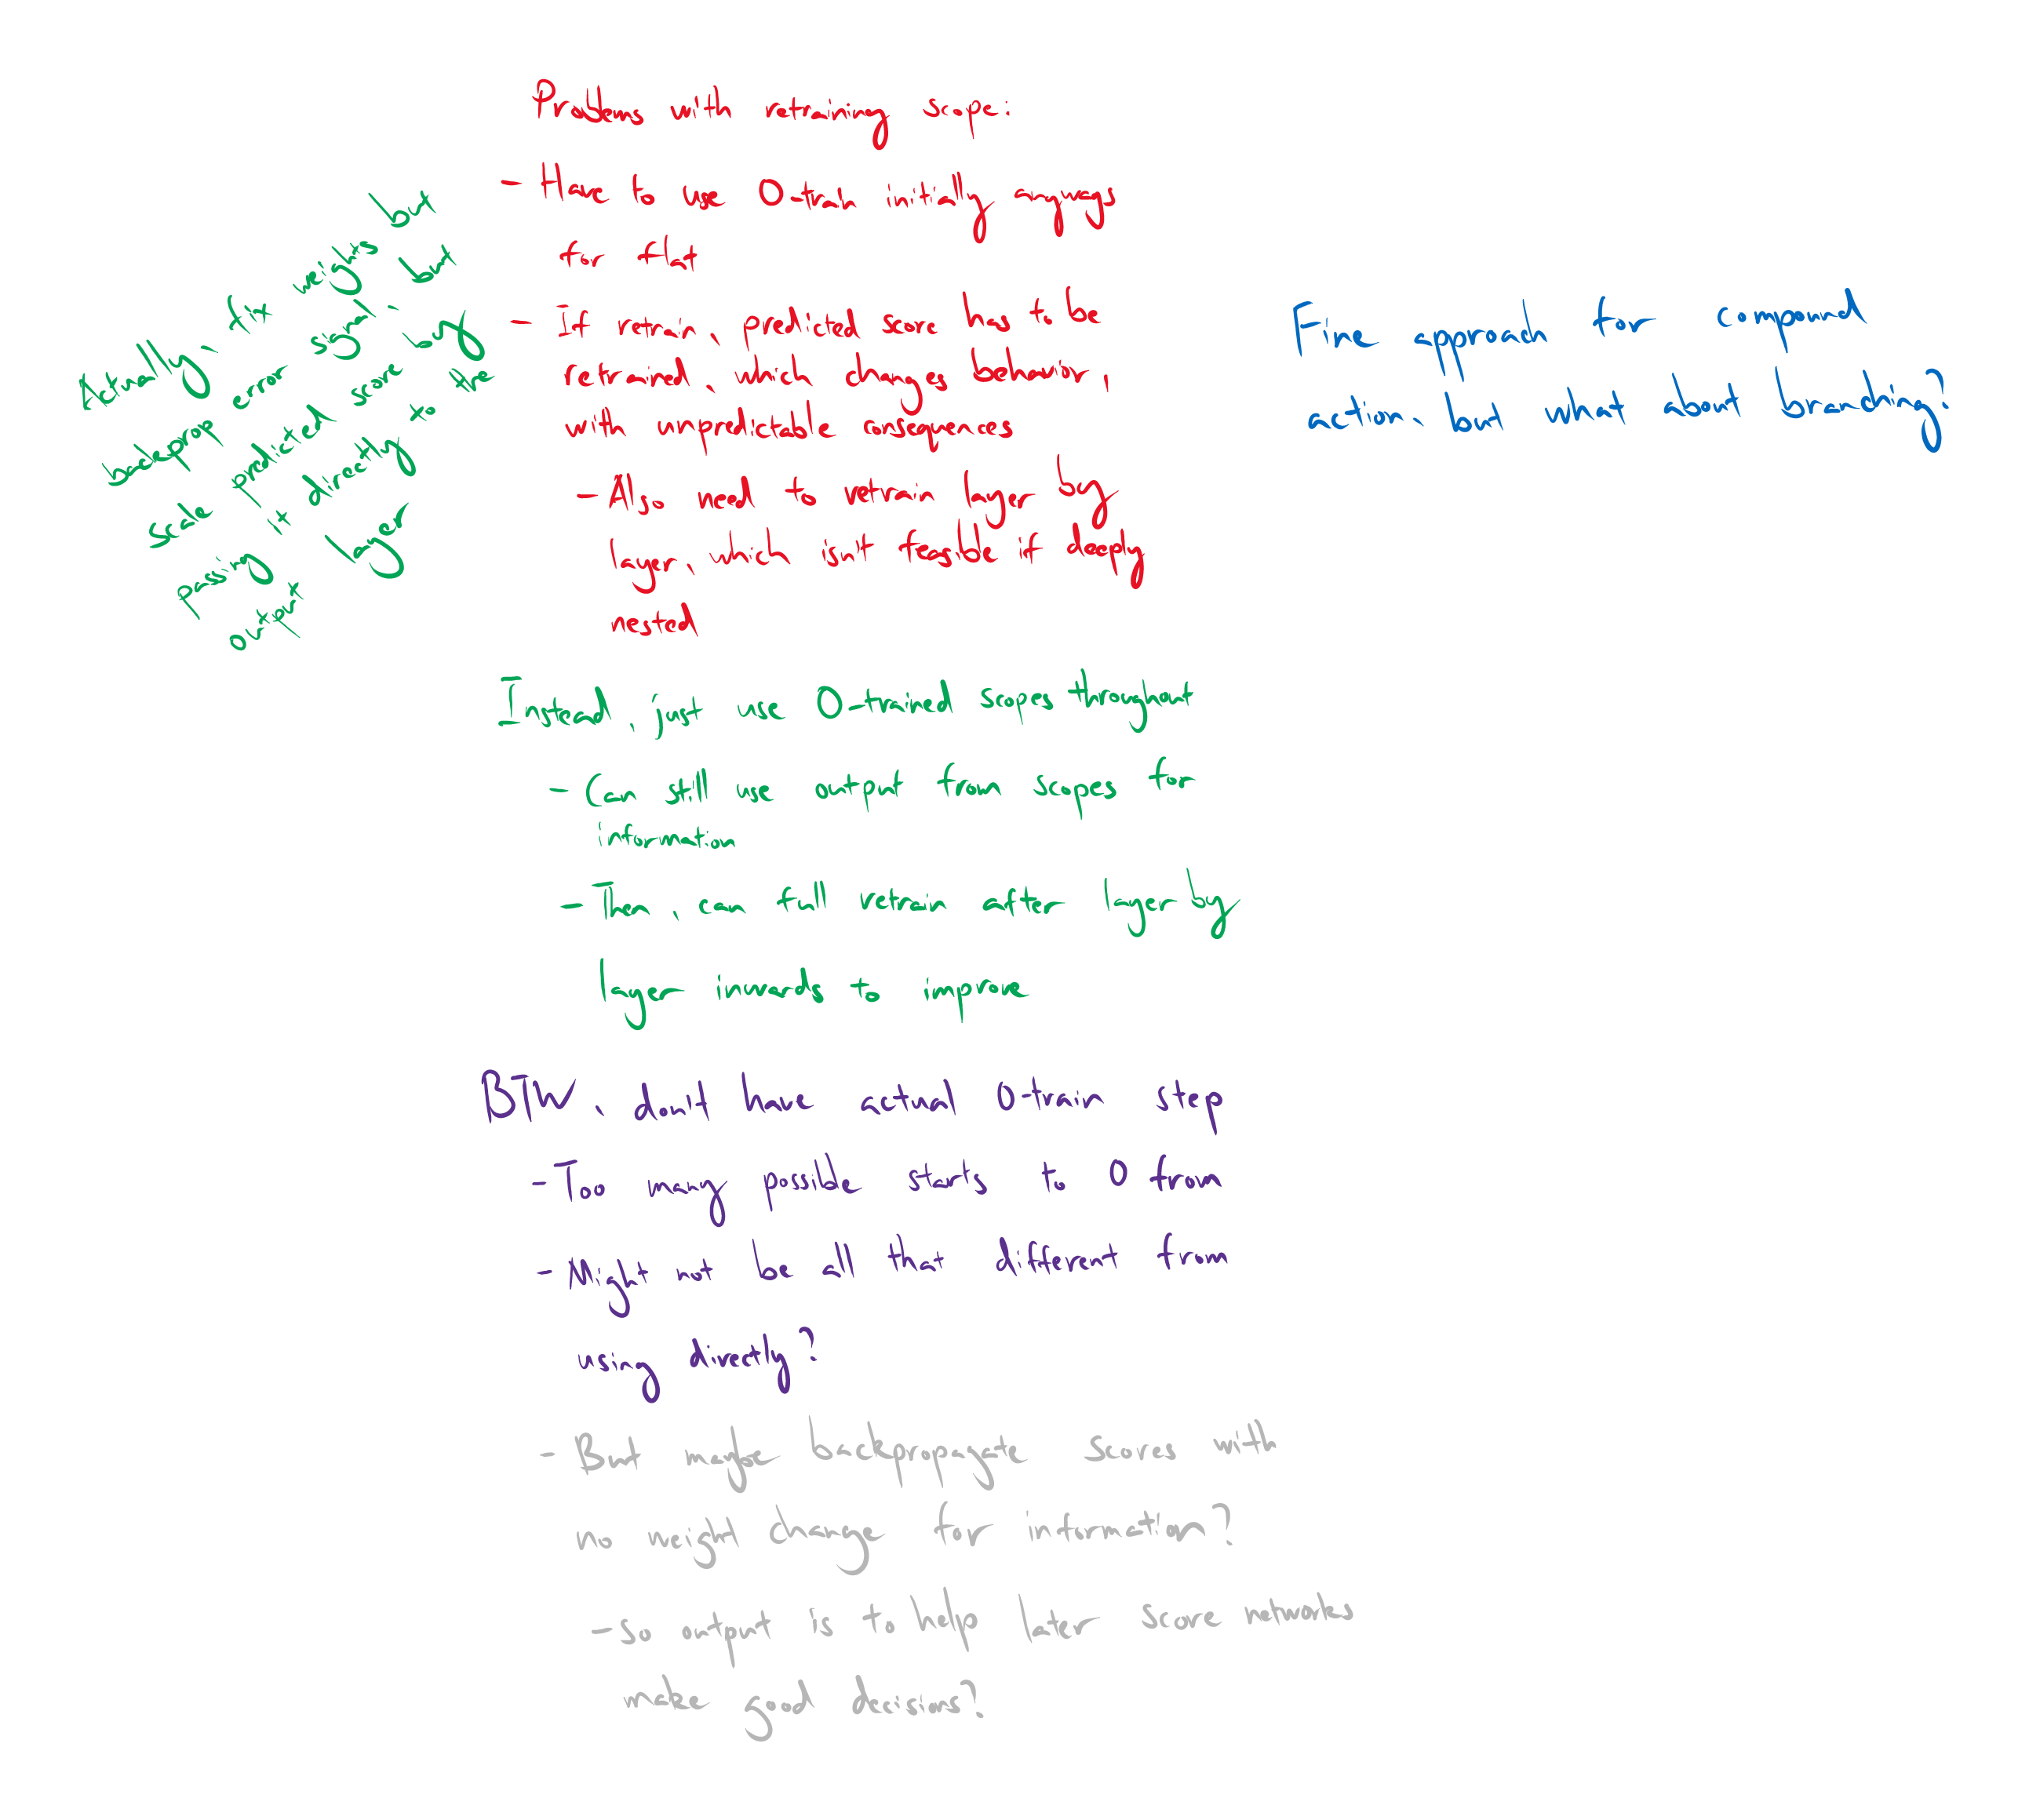 Problems with retraining scope:
- Have to use 0-train initially anyways
for that
- If retrain, predicted score has to be
retrained, which changes behavior,
with unpredictable consequences
- Also need to retrain layer by
layer, which isn't feasible if deeply
nested
Actually, fix weights but
backprop error signal - but
scale predicted score by
pairing it directly to the
output layer
Fine approach for compound
action, but what about branching?
Instead, just use 0-trained scopes throughout
- Can still use output from scopes for
information
- Then, can full retrain after layer by
layer inwards to improve
BTW, don't have actual 0 train step
- Too many possible starts to 0 from
- Might not be all that different from
using directly?
- But maybe backpropagate scores with
no weight change for information?
- So output is to help later score networks
make good decisions?